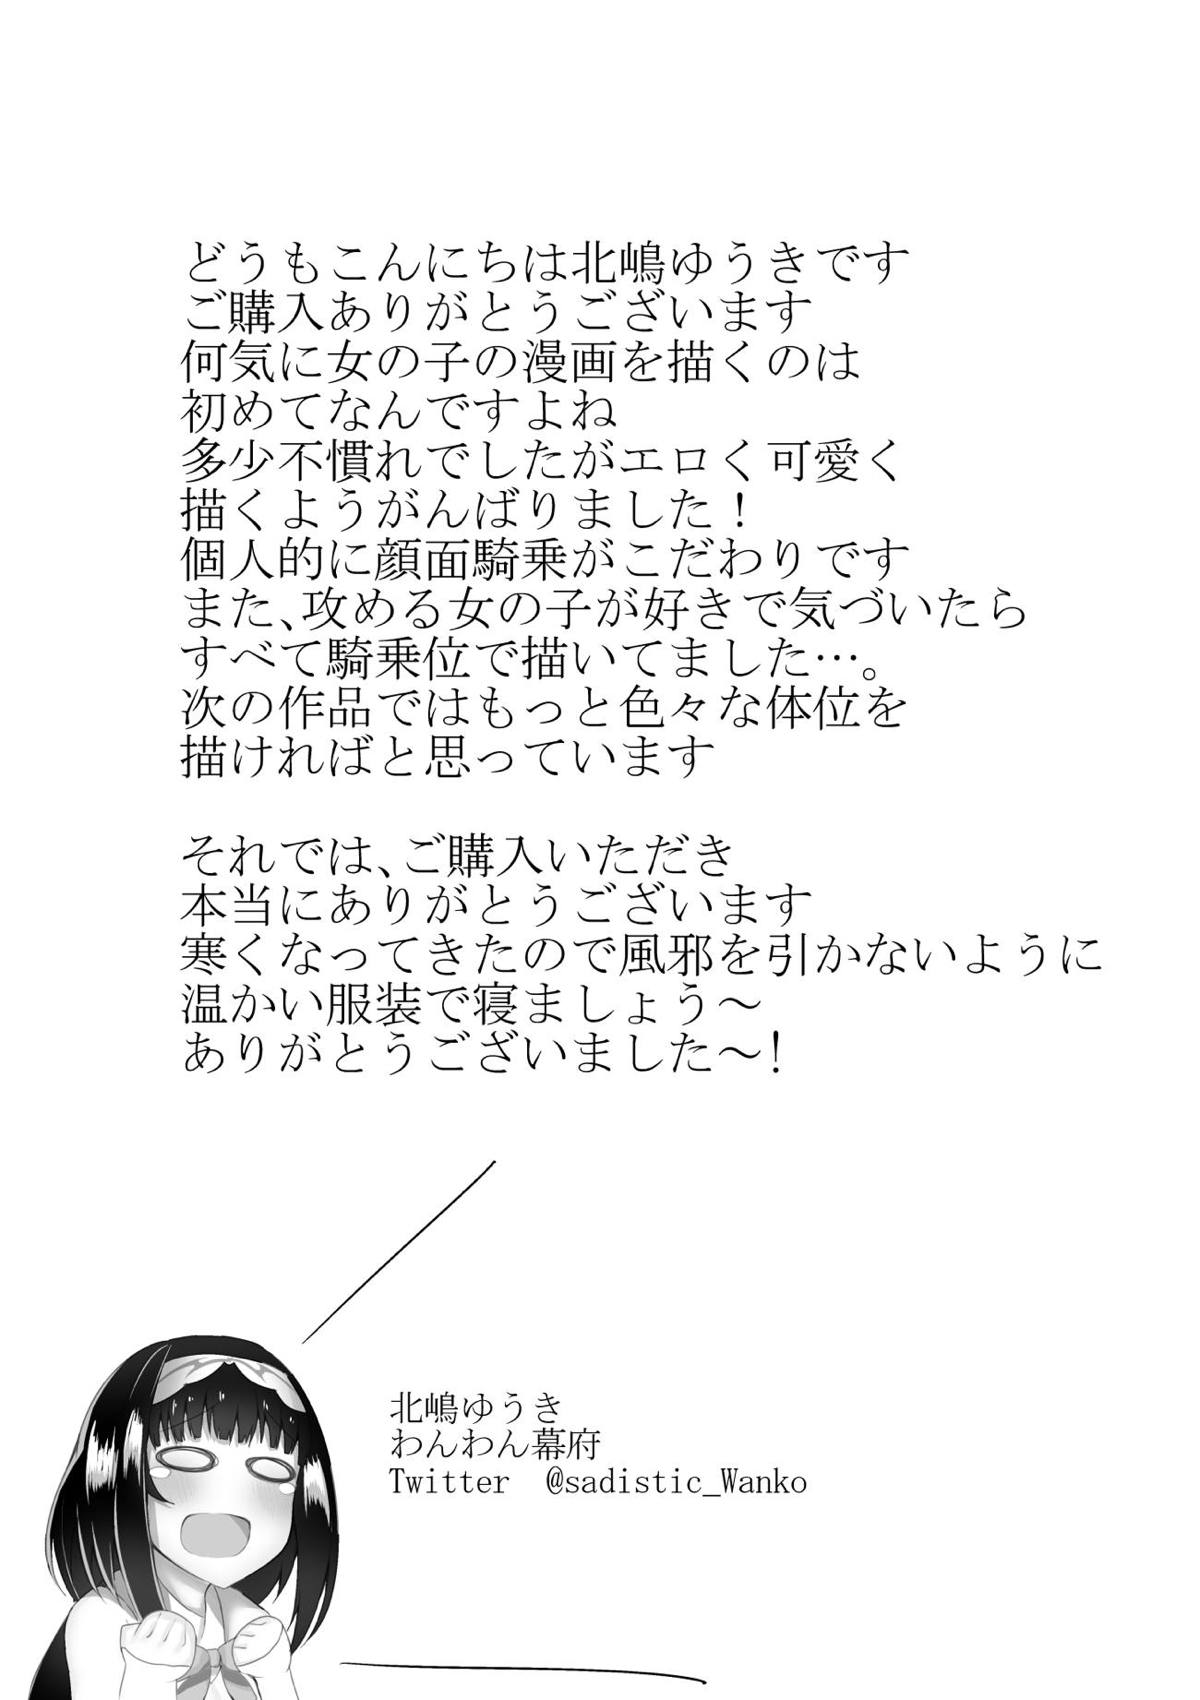 どうもこんにちは北嶋ゆうきです
ご購入ありがとうございます
何気に女の子の漫画を描くのは
初めてなんですよね
多少不慣れでしたがエロく可愛く
描くようがんばりました！
個人的に顔面騎乗がこだわりです
また、攻める女の子が好きで気づいたら
すべて騎乗位で描いてました…。
次の作品ではもっと色々な体位を
描ければと思っています
それでは、ご購入いただき
本当にありがとうございます
寒くなってきたので風邪を引かないように
温かい服装で寝ましょう～
ありがとうございました～！
北嶋ゆうき
わんわん幕府
Twitter　@sadistic_Wanko